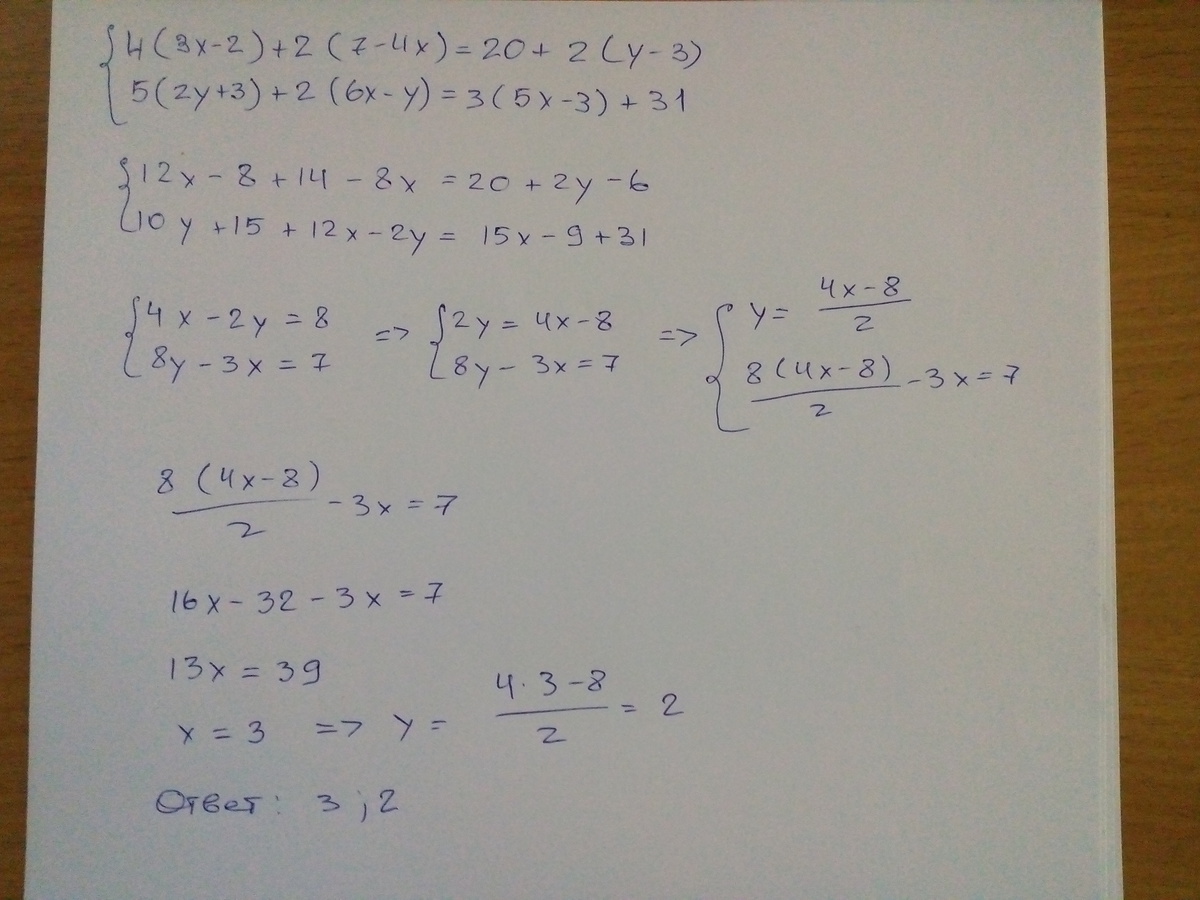 4(3x-2)+2(7-4x)=20+2(y-3)
5(2y+3)+2(6x-y)=3(5x-3)+31
12x-8+14-8x=20+2y-6
10y+15+12x-2y=15x-9+31
{4x-2y=8 => {2y=4x-8 => {y=(4x-8)/2
8y-3x=7 8y-3x=7 8(4x-8)/2-3x=7
8(4x-8)/2-3x=7
16x-32-3x=7
13x=39
x=3 => y=(4·3-8)/2=2
Ответ: 3;2